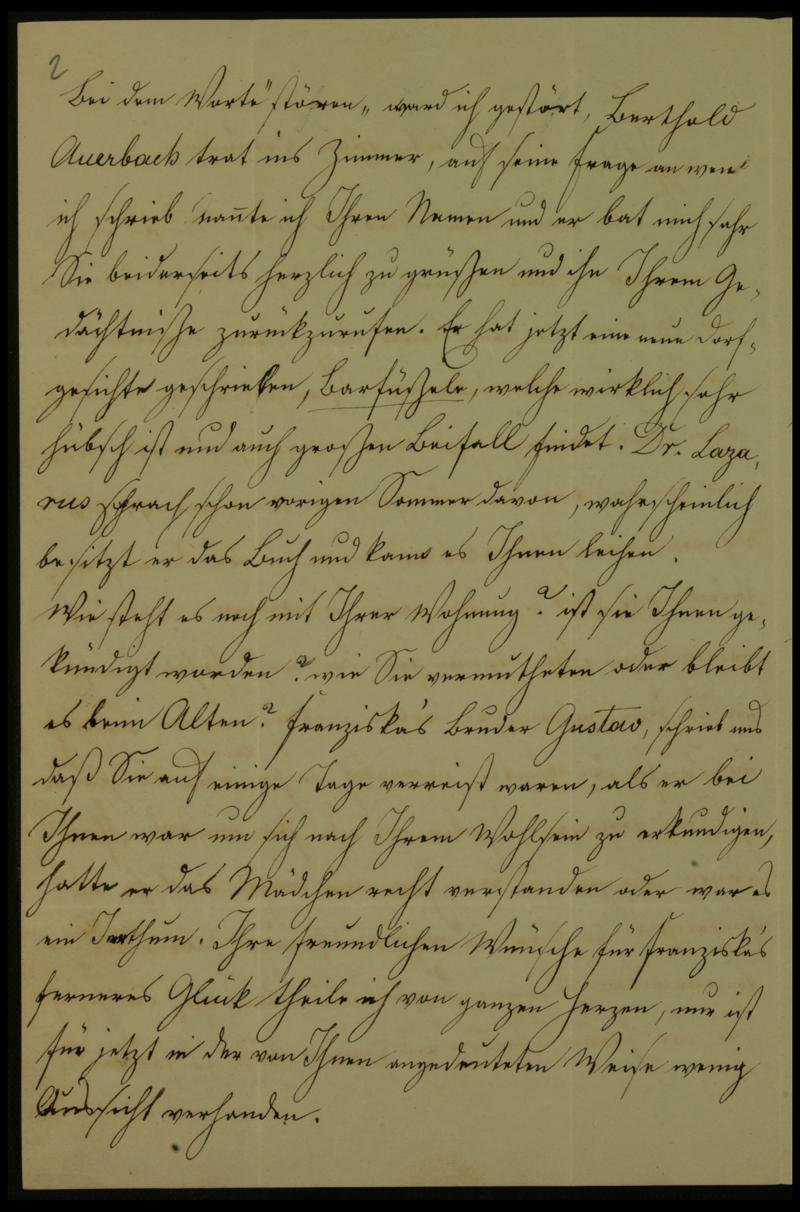 2
Bei dem Worte "stören" ward ich gestört, Berthold
Auerbach trat ins Zimmer, auf seine Frage an wen
ich schrieb nan̅te ich Ihren Namen und er bat mich sehr
Sie beiderseits herzlich zu grüßen und ihn Ihrem Ge-
dächtniße zurückzurufen. Er hat jetzt eine neue Dorf-
gesichte geschrieben, Barfüßele, welche wirklich sehr
hübsch ist und auch großen Beifall findet. Dr. Laza-
rus sprach schon vorigen Sommer davon, wahrscheinlich
besitzt er das Buch und kann es Ihnen leihen.
Wie steht es noch mit Ihrer Wohnung? ist sie Ihnen ge-
kündigt worden? wie Sie vermutheten oder bleibt
es beim Alten? Franziska's Bruder Gustav, schrieb uns
daß Sie auf einige Tage verreist waren, als er bei
Ihnen war um sich nach Ihrem Wohlsein zu erkundigen,
hatte er das Mädchen recht verstanden oder war es
ein Irrthum. Ihre freundlichen Wünsche für Franziska's
ferneres Glück theile ich von ganzen Herzen, nur ist
für jetzt in der von Ihnen angedeuteten Weise wenig
Aussicht vorhanden.